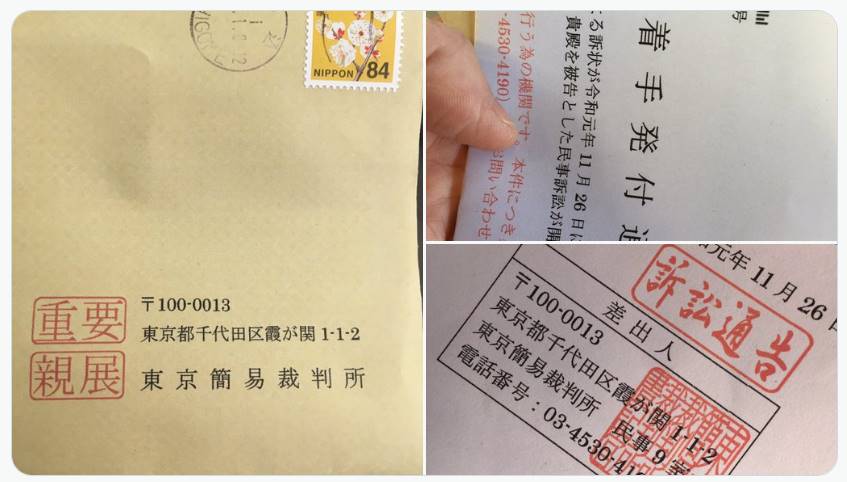 NIPPON 84
重要
親展
〒100-0013
東京都千代田区霞が関1-1-2
東京簡易裁判所
号
着手発付
る訴状が令和元年11月26日に
貴殿を被告とした民事訴訟が開
行う為の機関です。本件につき
-4530-4190)
お問い合わせ
和元年11月26日
訴訟通告
差出人
〒100-0013
東京都千代田区霞が関1-1-2
東京簡易裁判所 民事9室
電話番号:03-4530-419